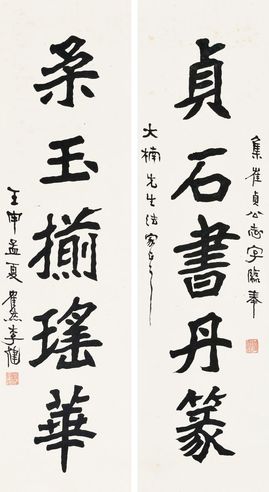 集崔貞公志字臨奉
貞石書丹篆
大楠先生法家正之
柔玉搊瑤華
壬申孟夏瞿然李健